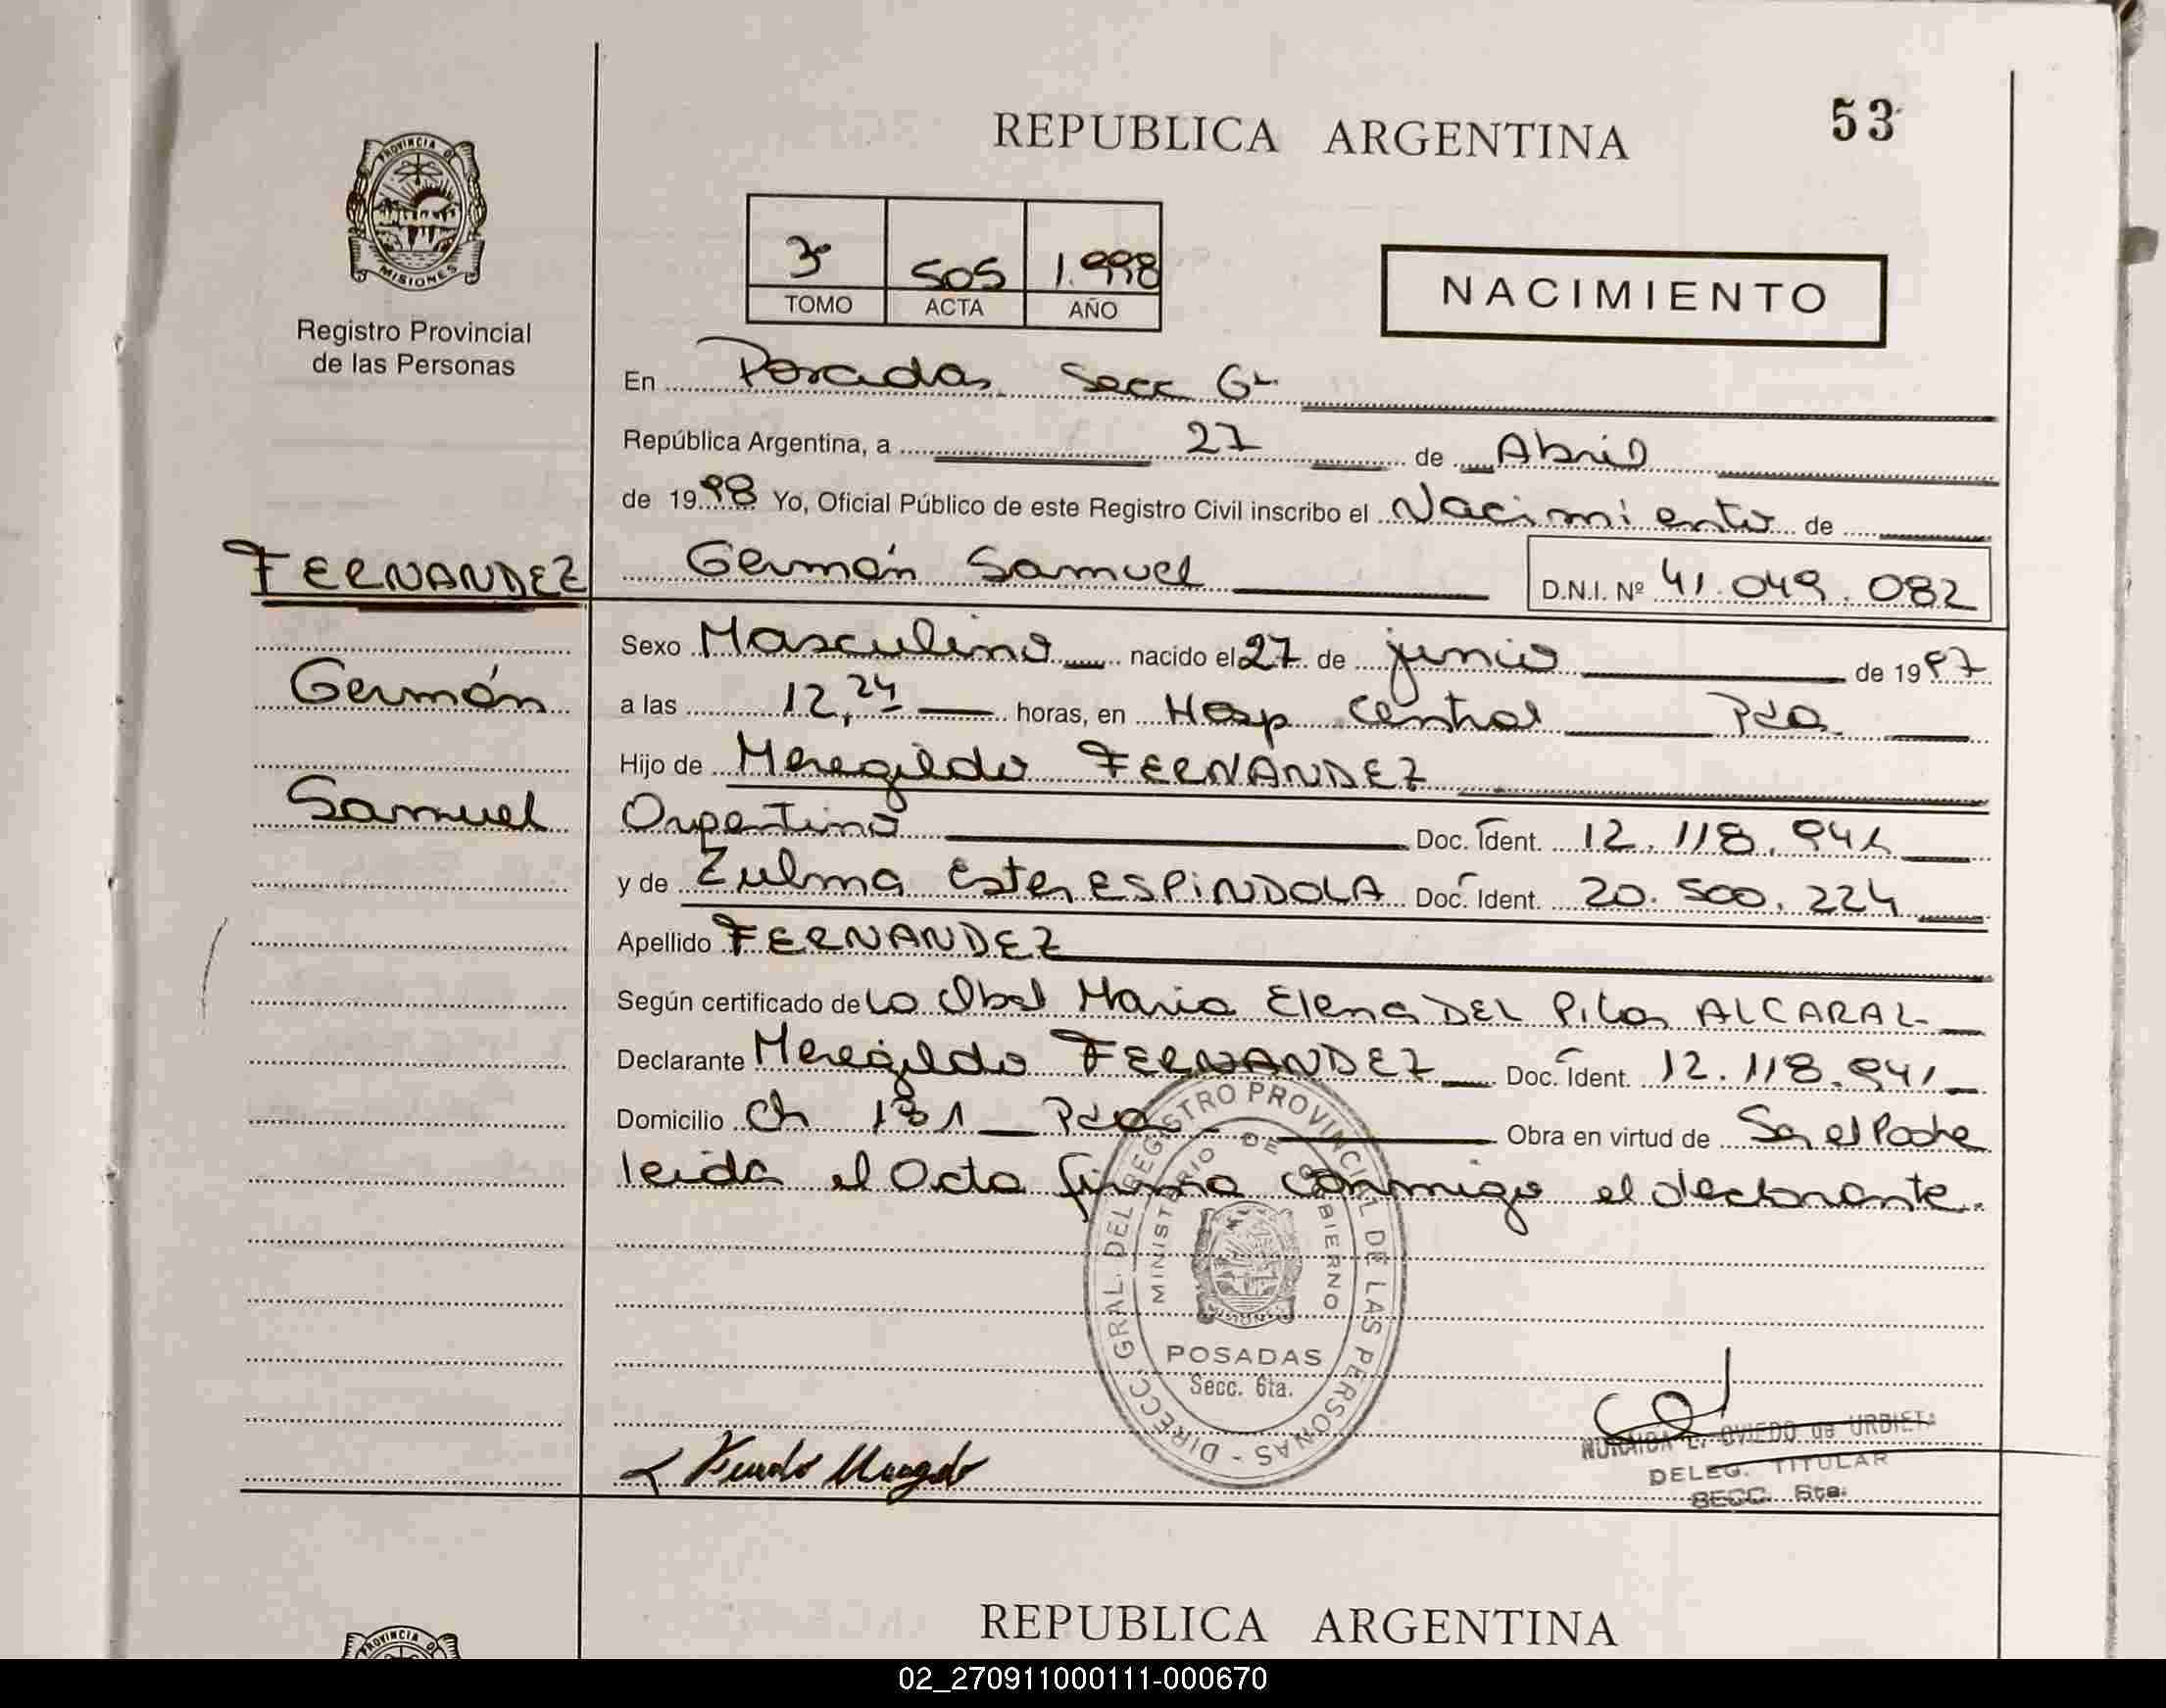 53
REPUBLICA ARGENTINA
PROVINCIA DE
MISIONES
Registro Provincial
de las Personas
3º 505 1.998
TOMO ACTA AÑO
NACIMIENTO
En Posadas Secc 6ta
República Argentina, a 27 de Abril
de 1998 Yo, Oficial Público de este Registro Civil inscribo el Nacimiento de
FERNANDEZ
Germán Samuel D.N.I. Nº 41.049.082
Germán
Samuel
Sexo Masculino nacido el 27 de junio de 1997
a las 12,24 horas, en Hosp Central Pdas
Hijo de Meregildo FERNANDEZ
Argentino Doc. Ident. 12.118.941
y de Zulma Ester ESPINDOLA Doc. Ident. 20.500.224
Apellido FERNANDEZ
Según certificado de La Obst Maria Elena DEL Pilar ALCARAZ
Declarante Meregildo FERNANDEZ Doc. Ident. 12.118.941
Domicilio Ch 131 Pdas Obra en virtud de Ser el Padre
leida el Acta firma conmigo el declarante.
DIRECC. GRAL. DEL REGISTRO PROVINCIAL DE LAS PERSONAS -
MINISTERIO DE GOBIERNO
MISIONES
POSADAS
Secc. 6ta.
OVIEDO de URBIETA
DELEG. TITULAR
SECC. 6ta.
PROVINCIA DE
REPUBLICA ARGENTINA
02_270911000111-000670